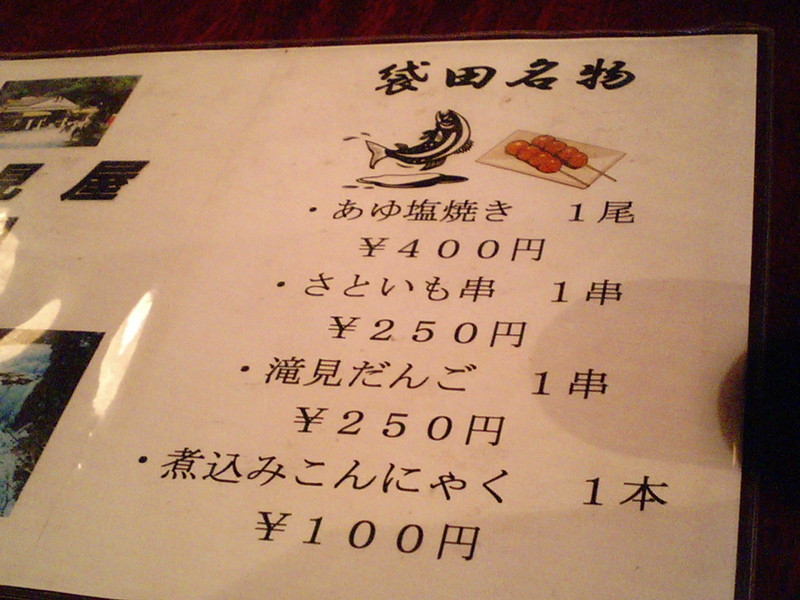 見屋
袋田名物
・あゆ塩焼き　１尾
￥４００円
・さといも串　１串
￥２５０円
・滝見だんご　１串
￥２５０円
・煮込みこんにゃく　１本
￥１００円